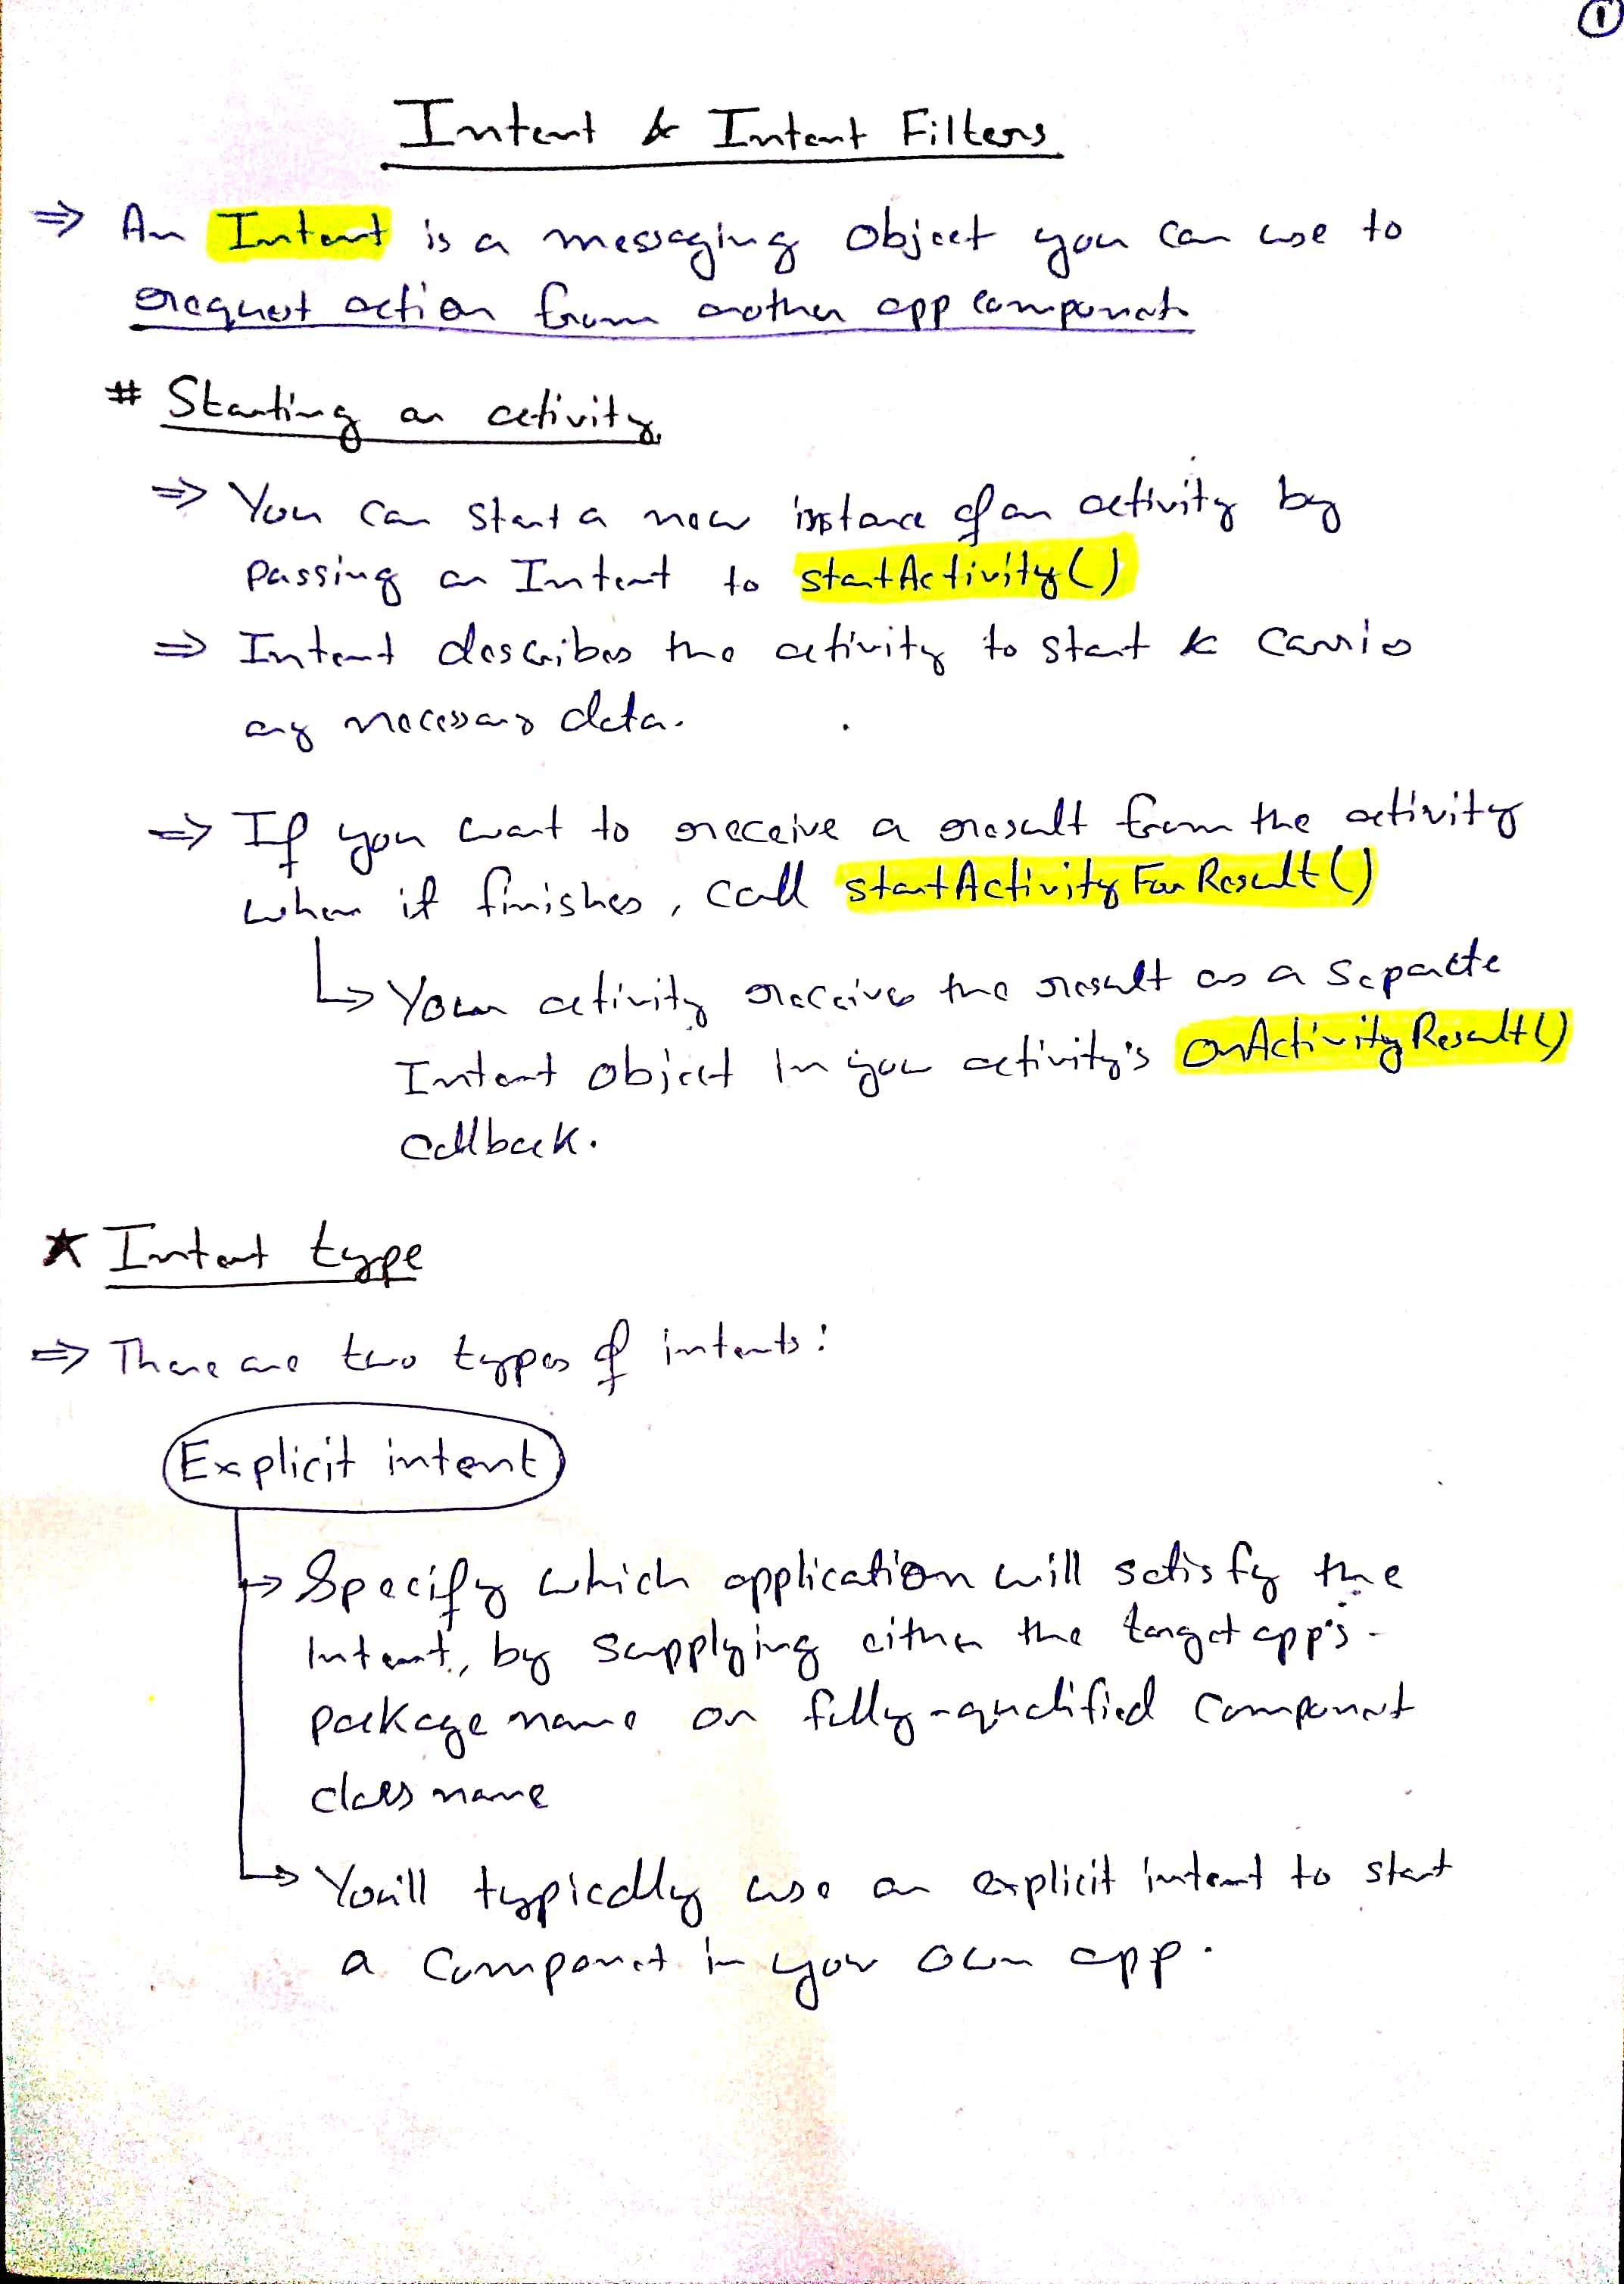 1
Intent & Intent Filters
⇒ An Intent is a messaging object you can use to
request action from another app component
# Starting an activity
⇒ You can start a new instance of an activity by
passing an Intent to startActivity()
⇒ Intent describes the activity to start & carries
any necessary data.
⇒ If you want to receive a result from the activity
when it finishes, call startActivityForResult()
↳ Your activity receives the result as a separate
Intent object in your activity's onActivityResult()
callback.
★ Intent type
⇒ There are two types of intents:
Explicit intent
→ Specify which application will satisfy the
intent, by supplying either the target app's
package name or fully-qualified component
class name
→ You'll typically use an explicit intent to start
a component in your own app.